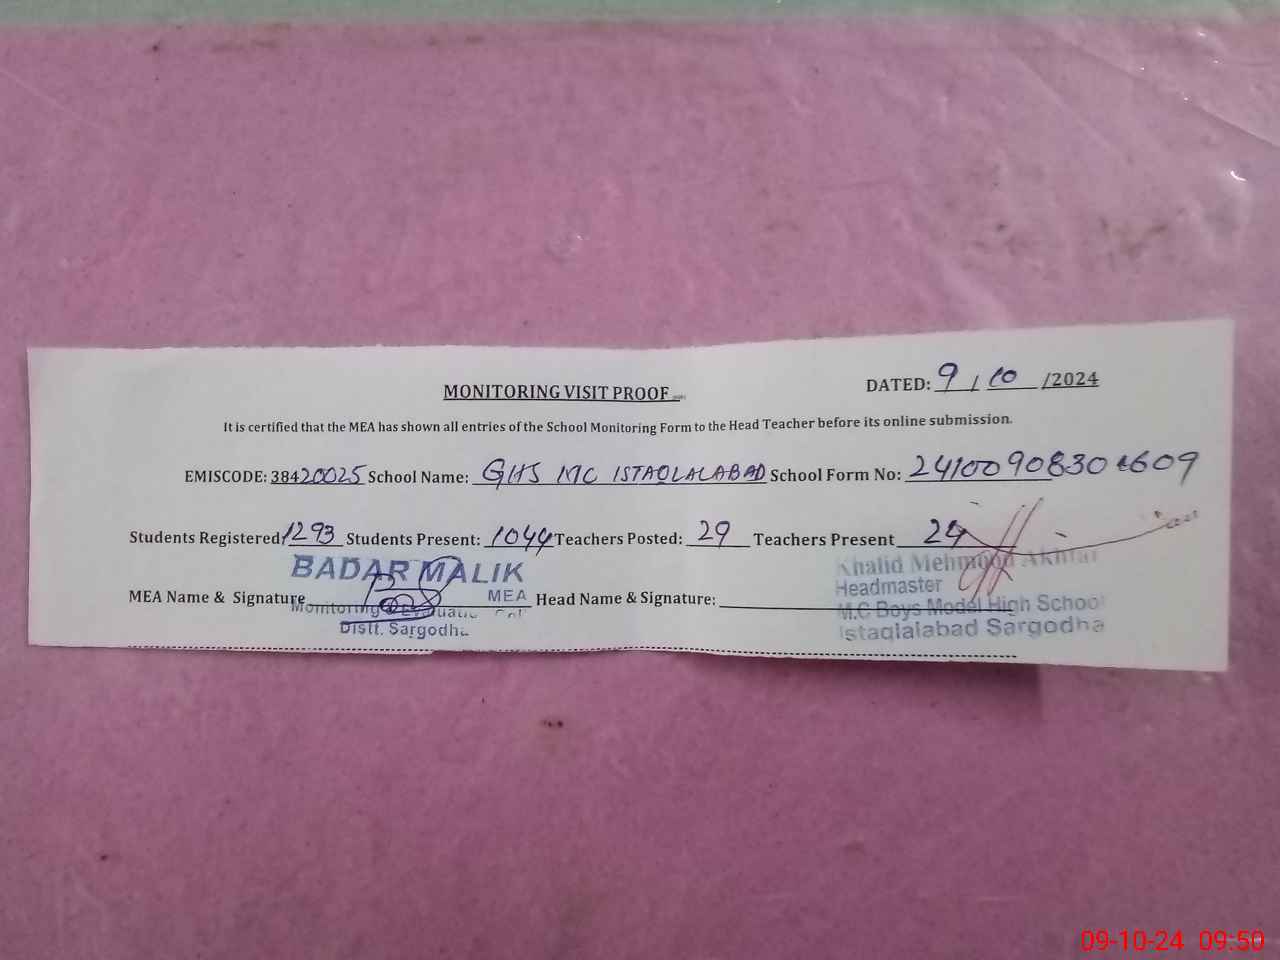 MONITORING VISIT PROOF
DATED: 9 / 10 /2024
It is certified that the MEA has shown all entries of the School Monitoring Form to the Head Teacher before its online submission.
EMISCODE: 38420025 School Name: GHS MC ISTAQLALABAD School Form No:
Students Registered 1293 Students Present: 1044 Teachers Posted: 29 Teachers Present 24
BADAR MALIK
MEA
Monitoring &
Distt. Sargodha
MEA Name & Signature
Head Name & Signature:
Khalid Mehmood Akhtar
Headmaster
M.C Boys Model High School
Istaqlalabad Sargodha
09-10-24 09:50